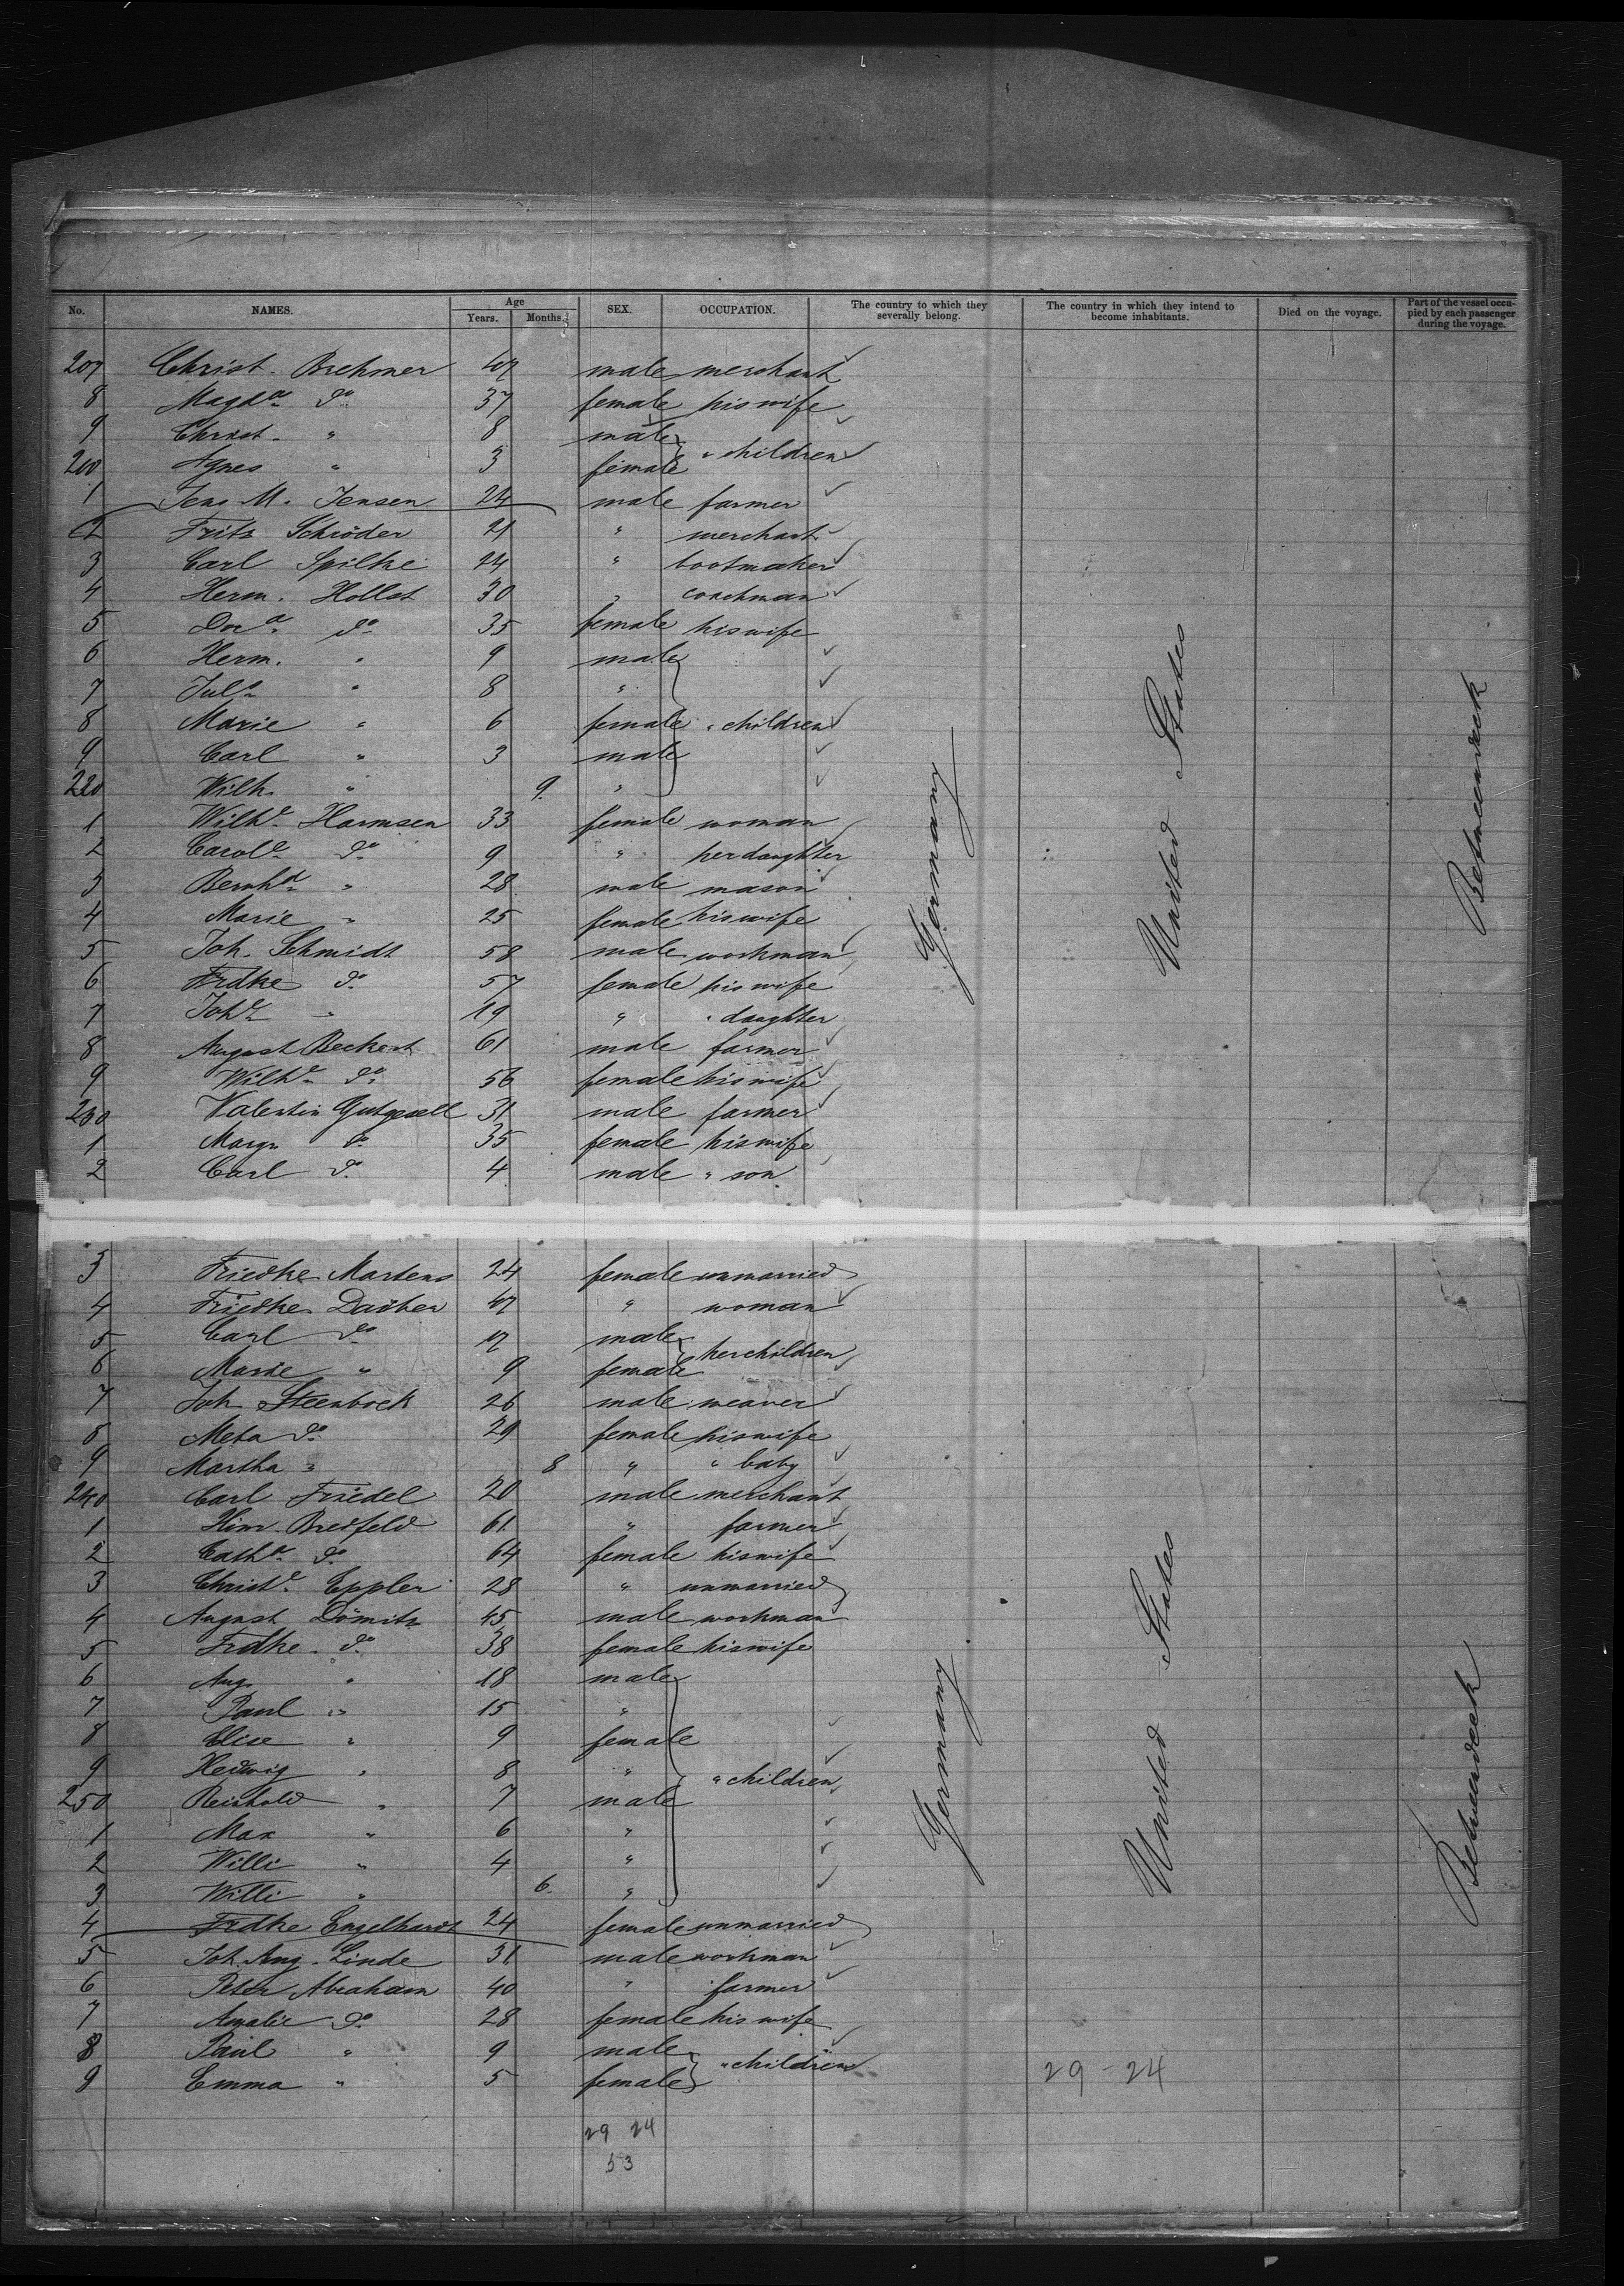 No. NAMES. Age Years. Months. SEX. OCCUPATION. The country to which they severally belong. The country in which they intend to become inhabitants. Died on the voyage. Part of the vessel occupied by each passenger during the voyage.
207 Christ. Brehmer 47 male merchant
8 Magda do 37 female his wife
9 Christ. " 8 male
210 Agnes " 3 female " children
1 Jens M. Jensen 24 male farmer
2 Fritz Schröder 21 " merchant
3 Carl Spilke 24 " bootmaker
4 Herm. Hollst 30 " coachman
5 Dora do 35 female his wife
6 Herm. " 9 male
7 Juls " 8 "
8 Marie " 6 female " children
9 Carl " 3 male
220 Wilh. " 9. "
1 Wilhe Harmsen 33 female woman
2 Carole do 9 " her daughter
3 Bernhd " 28 male mason
4 Marie " 25 female his wife
5 Joh. Schmidt 58 male workman
6 Frdke do 57 female his wife
7 Johe " 19 " " daughter
8 August Beckert 61 male farmer
9 Wilhe do 56 female his wife
230 Valentin Gutgesell 31 male farmer
1 Margr do 35 female his wife
2 Carl do 4 male " son
Germany
United States
Betweendeck
3 Friedke Martens 24 female unmarried
4 Friedke Daüber 47 " woman
5 Carl do 17 male
6 Marie " 9 female her children
7 Joh Steenbock 26 male weaver
8 Meta do 29 female his wife
9 Martha " 8 " " baby
240 Carl Friedel 20 male merchant
1 Hinr. Bredfeld 61 " farmer
2 Catha do 64 female his wife
3 Christe Eppler 28 " unmarried
4 August Dömitz 45 male workman
5 Frdke do 38 female his wife
6 Aug. " 18 male
7 Paul " 15 "
8 Elise " 9 female
9 Hedwig " 8 " " children
250 Reinhold " 7 male
1 Max " 6 "
2 Willi " 4 "
3 Willi " 6. "
4 Frdke Engelhardt 24 female unmarried
5 Joh. Aug. Linde 31 male workman
6 Peter Abraham 40 " farmer
7 Amalie do 28 female his wife
8 Paul " 9 male
9 Emma " 5 female " children
Germany
United States
Betweendeck
29 - 24
29 24
53